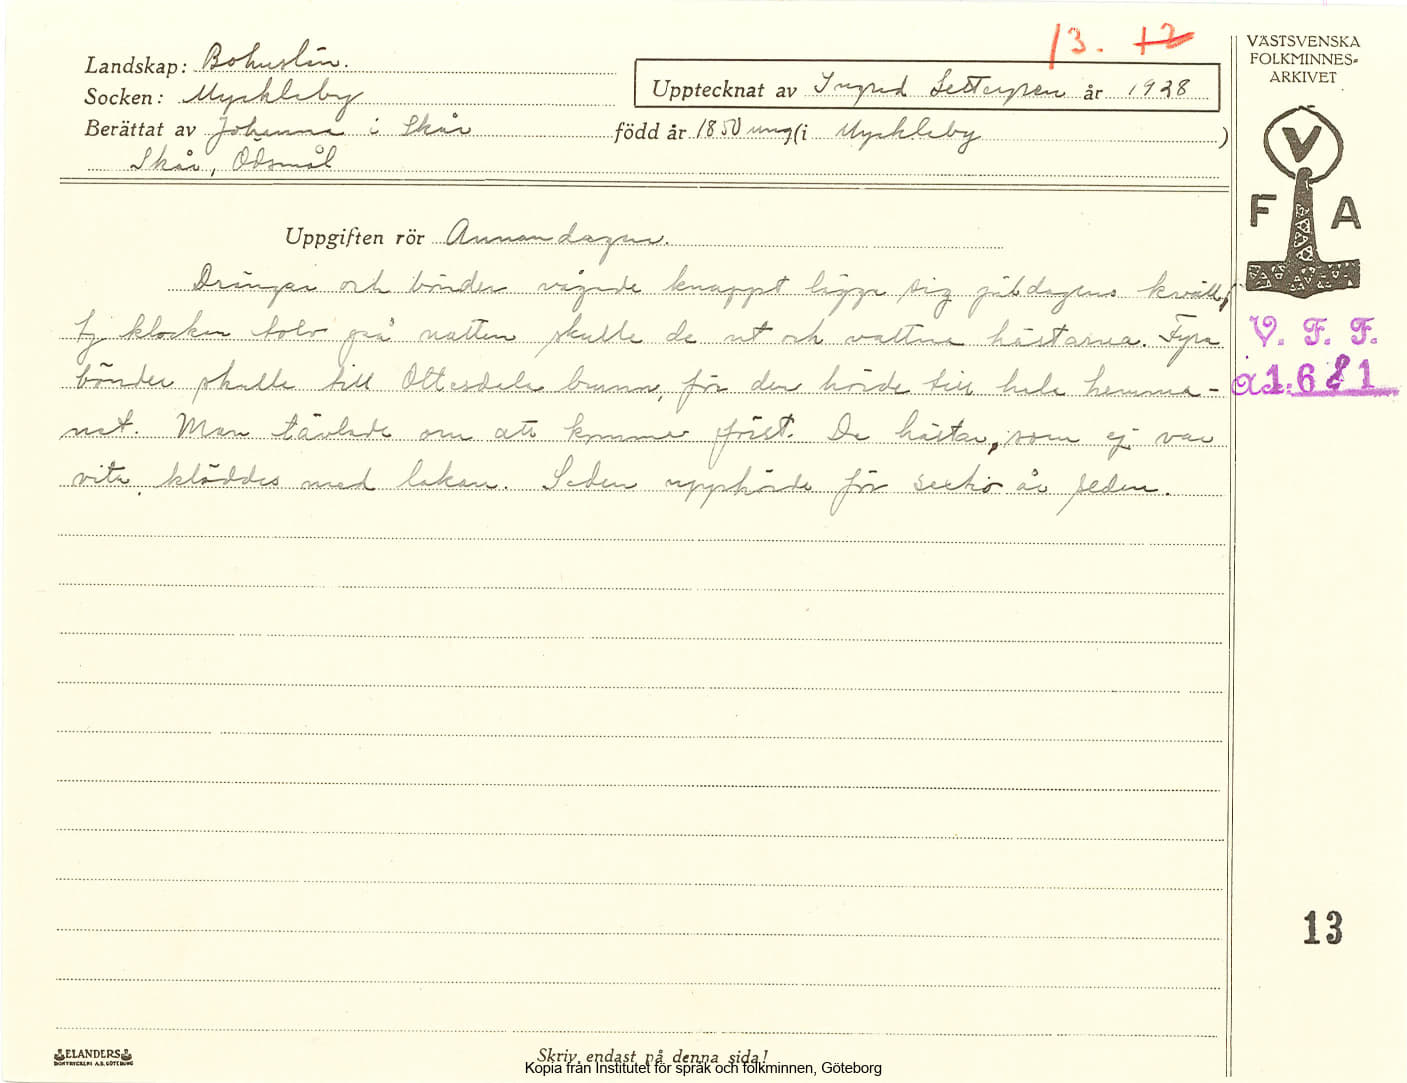 13. 12
VÄSTSVENSKA
FOLKMINNES-
ARKIVET
Landskap: Bohuslän.
Socken: Myckleby
Upptecknat av Ingrid år 1928
Berättat av Johanna i Skår född år 1850 ung (i Myckleby)
Skår, Ödsmål
V
F A
Uppgiften rör Annandagen.
Drängar och bönder vågade knappt lägga sig juldagens kväll,
ty klockan tolv på natten skulle de ut och vattna hästarna. Fyra
bönder skulle till Ottesdala brunn, för den hörde till hela hemma-
net. Man tävlade om att komma först. De hästar, som ej var
vita, kläddes med lakan. Seden upphörde för sextio år sedan.
V. F. F.
1681
13
ELANDERS
BOKTRYCKERI A.B. GÖTEBORG
Skriv endast på denna sida!
Kopia från Institutet för språk och folkminnen, Göteborg